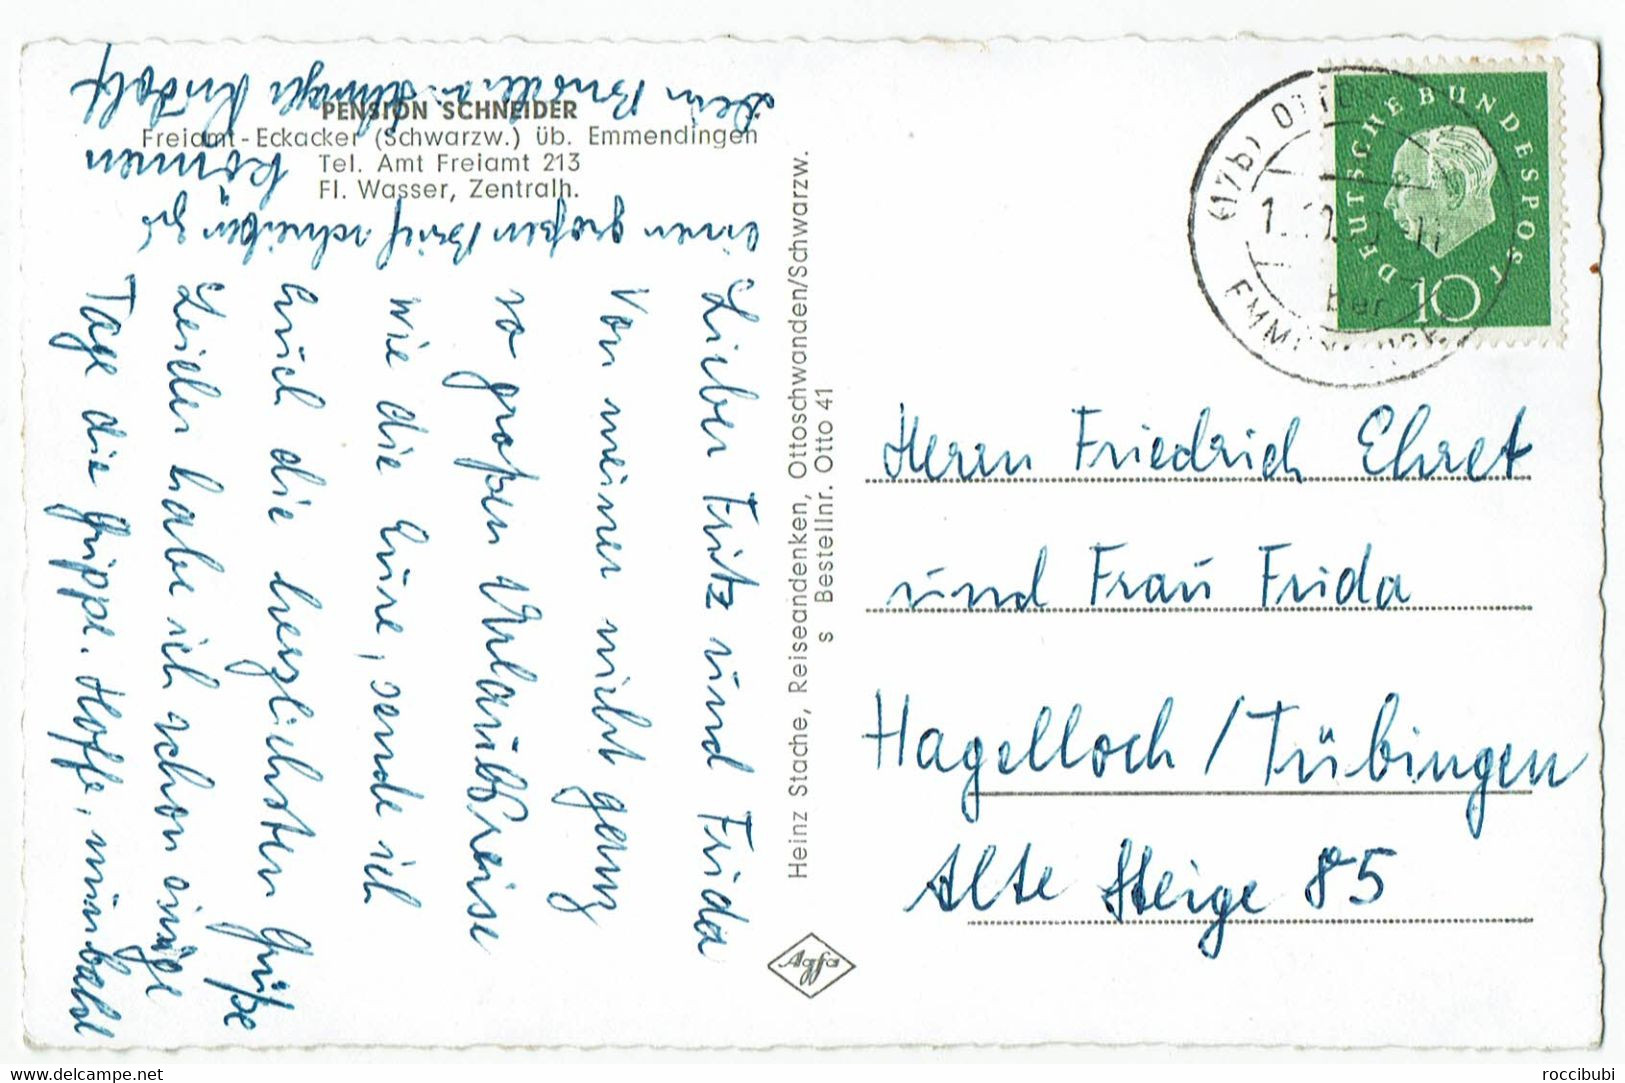 PENSION SCHNEIDER
Freiamt-Eckacker (Schwarzw.) üb. Emmendingen
Tel. Amt Freiamt 213
Fl. Wasser, Zentralh.
Lieber Fritz und Frida
Von meiner nicht ganz
so großen Urlaubsreise
wie die Eure, sende ich
Euch die herzlichsten Grüße
Leider habe ich schon einige
Tage die Grippe. Hoffe, nun bald
einen großen Brief schreiben zu
können
Dein Bruder u. Schwager Rudolf
Heinz Stache, Reiseandenken, Ottoschwanden/Schwarzw.
s Bestellnr. Otto 41
Agfa
(17b) OTTOS
EMM
DEUTSCHE BUNDESPOST
10
Herrn Friedrich Ehret
und Frau Frida
Hagelloch / Tübingen
Alte Steige 85
www.delcampe.net
roccibubi